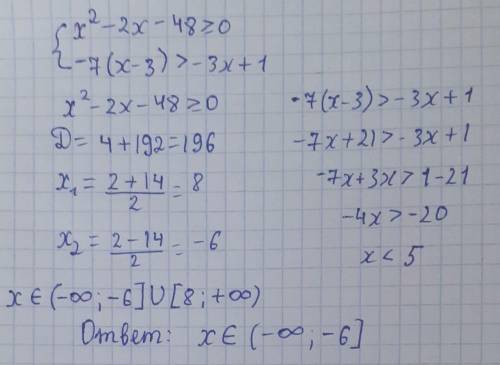 { x² - 2x - 48 ≥ 0
-7(x-3) > -3x + 1
x² - 2x - 48 ≥ 0
D = 4 + 192 = 196
x₁ = (2 + 14)/2 = 8
x₂ = (2 - 14)/2 = -6
-7(x-3) > -3x + 1
-7x + 21 > -3x + 1
-7x + 3x > 1 - 21
-4x > -20
x < 5
x ∈ (-∞; -6] ∪ [8; +∞)
Ответ: x ∈ (-∞; -6]